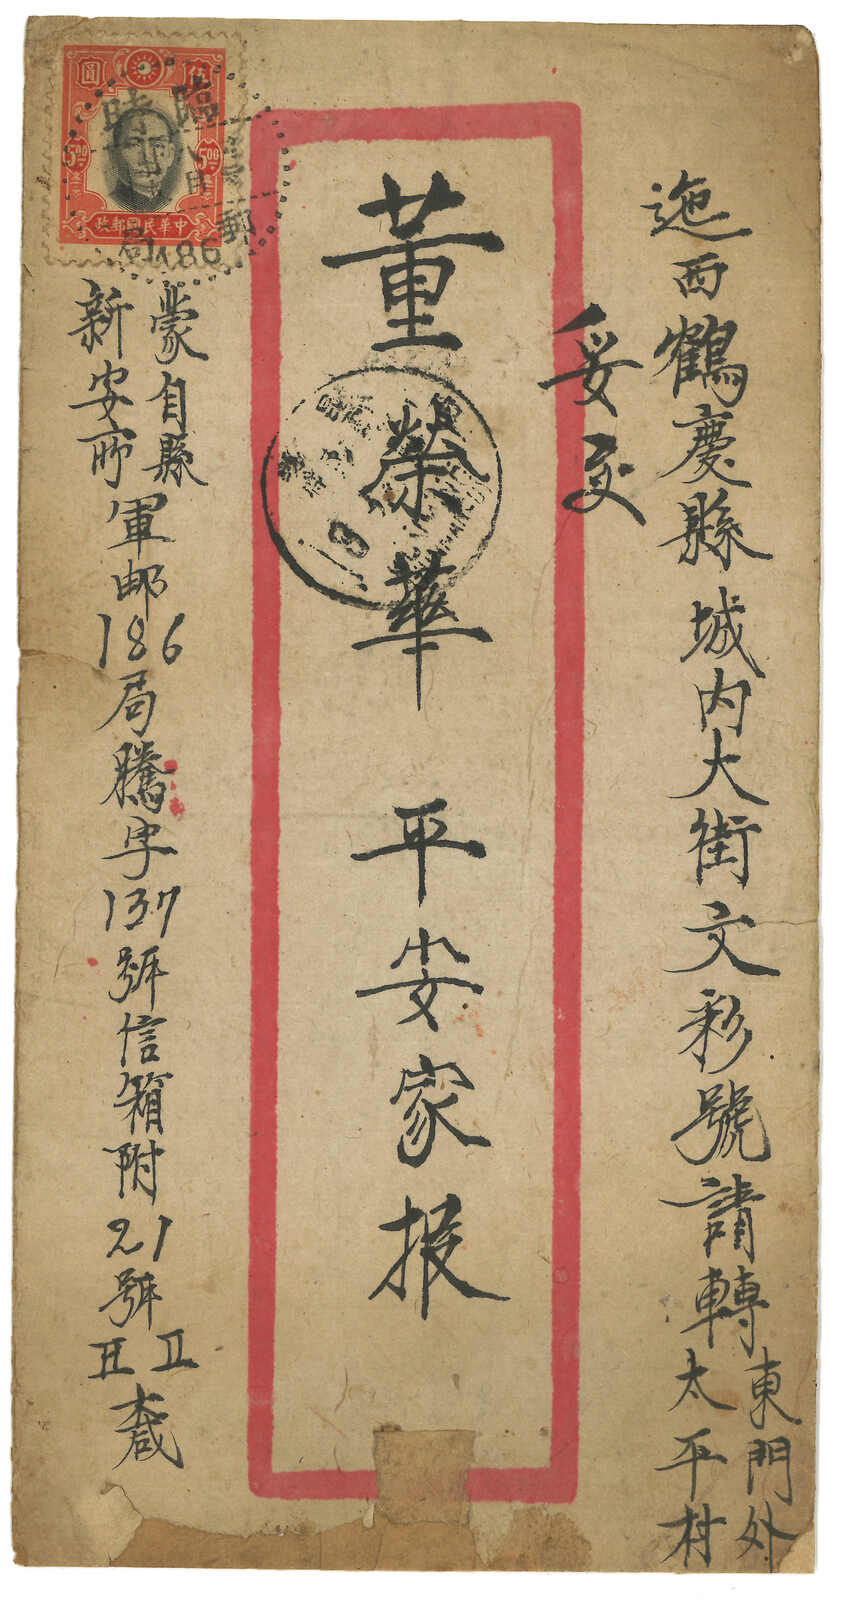 迤西鶴慶縣城内大街文彩號請轉
東門外
太平村
妥交
董榮華 平安家报
蒙自縣
新安所
軍邮186局騰字137號信箱附21號
圓 伍
500 500
中華民國郵政
臨時
郵局
186